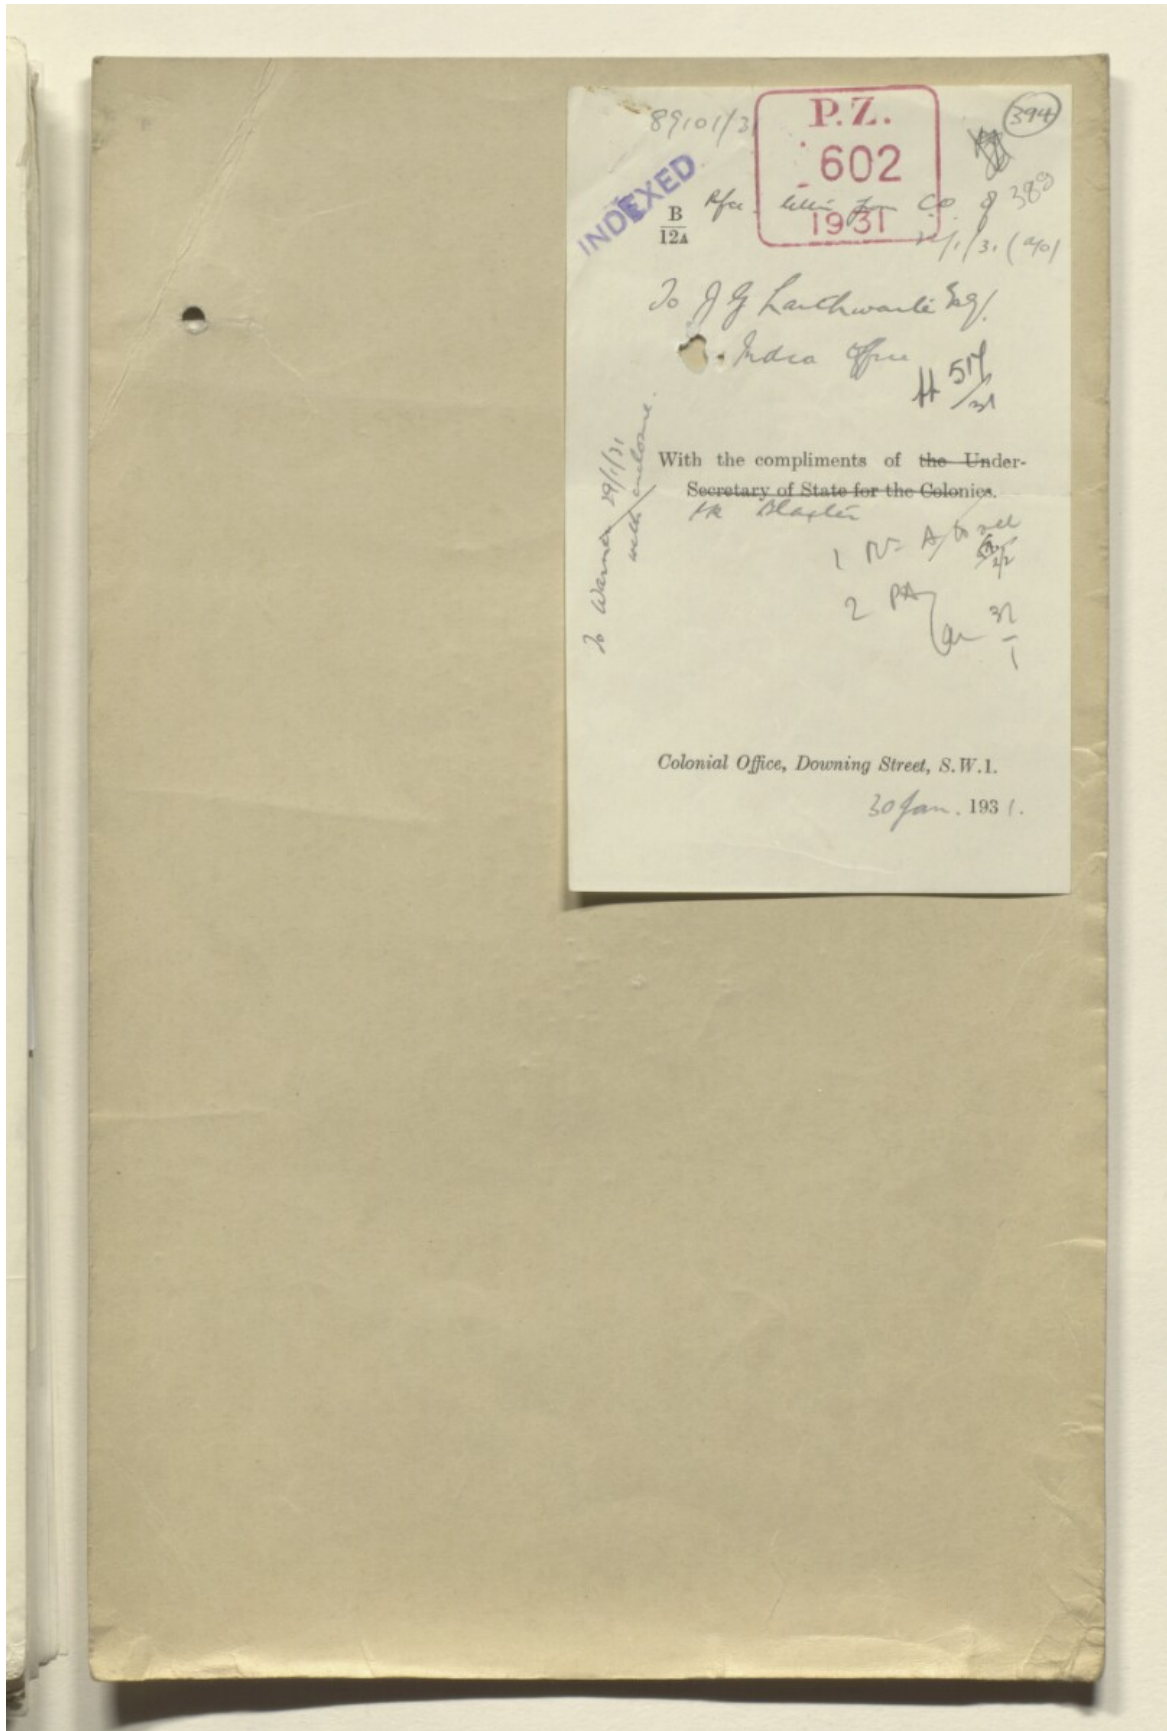 89101/31
P.Z.
602
1931
394
INDEXED
B
12A
Rfce. letter from C.O. of 389
/1/31 (
To J G Laithwaite Esq.
India Office
517
/31
With the compliments of the Under-
Secretary of State for the Colonies.
Mr Blaxter
1
2 PA
31
1
To Warner 29/1/31
with enclosure.
Colonial Office, Downing Street, S.W.1.
30 Jan. 1931.